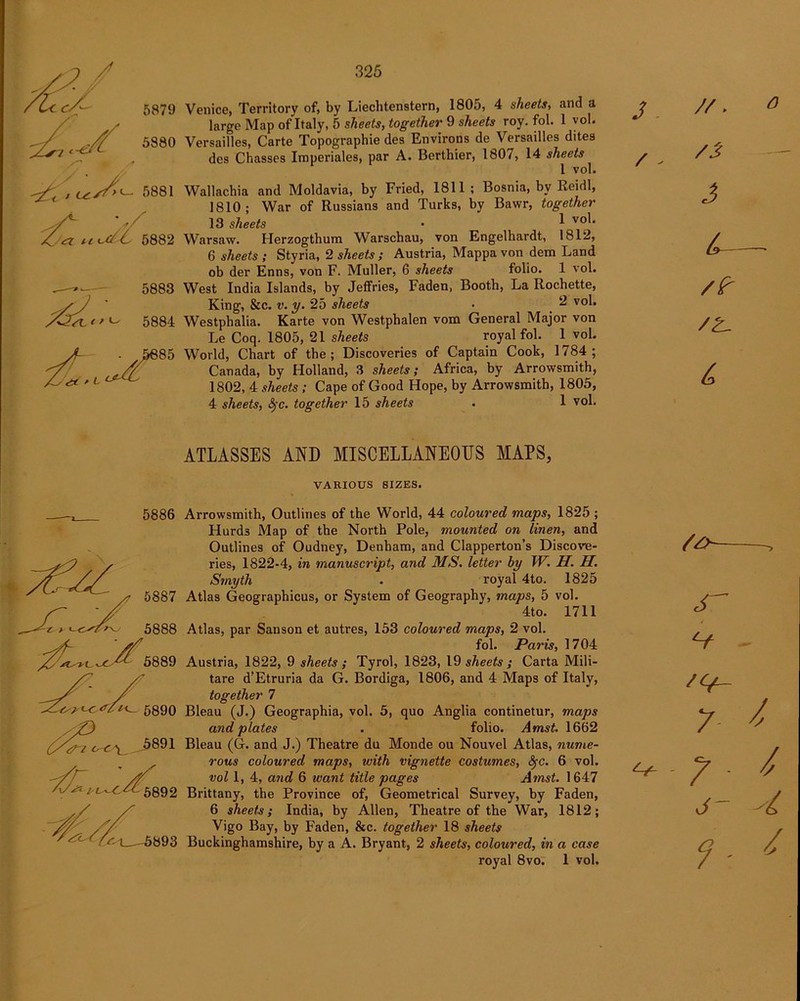 325
5879 Venice, Territory of, by Liechtenstern, 1805, 4 sheets, and a
large Map of Italy, 5 sheets, together 9 sheets roy. fol. 1 vol.
3 11. 0
5880 Versailles, Carte Topographie des Environs de Versailles dites
des Chasses Imperiales, par A. Berthier, 1807, 14 sheets
1 vol.
1 . 13
5881 Wallachia and Moldavia, by Fried, 1811 ; Bosnia, by Reidl,
1810 ; War of Russians and Turks, by Bawr, together
13 sheets . 1 vol.
3
5882 Warsaw. Herzogthum Warschau, von Engelhardt, 1812,
6 sheets ; Styria, 2 sheets ; Austria, Mappa von dem Land
ob der Enns, von F. Muller, 6 sheets folio. 1 vol.
6
5883 West India Islands, by Jeffries, Faden, Booth, La Rochette,
King, &c. v. y. 25 sheets . 2 vol.
18
5884 Westphalia. Karte von Westphalen vom General Major von
Le Coq. 1805, 21 sheets royal fol. 1 vol.
12
5885 World, Chart of the ; Discoveries of Captain Cook, 1784 ;
Canada, by Holland, 3 sheets ; Africa, by Arrowsmith,
1802, 4 sheets ; Cape of Good Hope, by Arrowsmith, 1805,
4 sheets, &c. together 15 sheets . 1 vol.
6
ATLASSES AND MISCELLANEOUS MAPS,
VARIOUS SIZES.
5886 Arrowsmith, Outlines of the World, 44 coloured maps, 1825 ;
Hurds Map of the North Pole, mounted on linen, and
Outlines of Oudney, Denham, and Clapperton's Discove-
ries, 1822-4, in manuscript, and MS. letter by W. H. H.
Smyth . royal 4to. 1825
10
5887 Atlas Geographicus, or System of Geography, maps, 5 vol.
4to. 1711
5
5888 Atlas, par Sanson et autres, 153 coloured maps, 2 vol.
fol. Paris, 1704
4
5889 Austria, 1822, 9 sheets ; Tyrol, 1823, 19 sheets ; Carta Mili-
tare d'Etruria da G. Bordiga, 1806, and 4 Maps of Italy,
together 7
14
5890 Bleau (J.) Geographia, vol. 5, quo Anglia continetur, maps
and plates . folio. Amst. 1662
7 - 6
5891 Bleau (G. and J.) Theatre du Monde ou Nouvel Atlas, nume-
rous coloured maps, with vignette costumes, &c. 6 vol.
vol 1, 4, and 6 want title pages Amst. 1647
4 - 7 - 6
5892 Brittany, the Province of, Geometrical Survey, by Faden,
6 sheets ; India, by Allen, Theatre of the War, 1812 ;
Vigo Bay, by Faden, &c. together 18 sheets
5 - 6
5893 Buckinghamshire, by a A. Bryant, 2 sheets, coloured, in a case
royal 8vo. 1 vol.
9 - 6